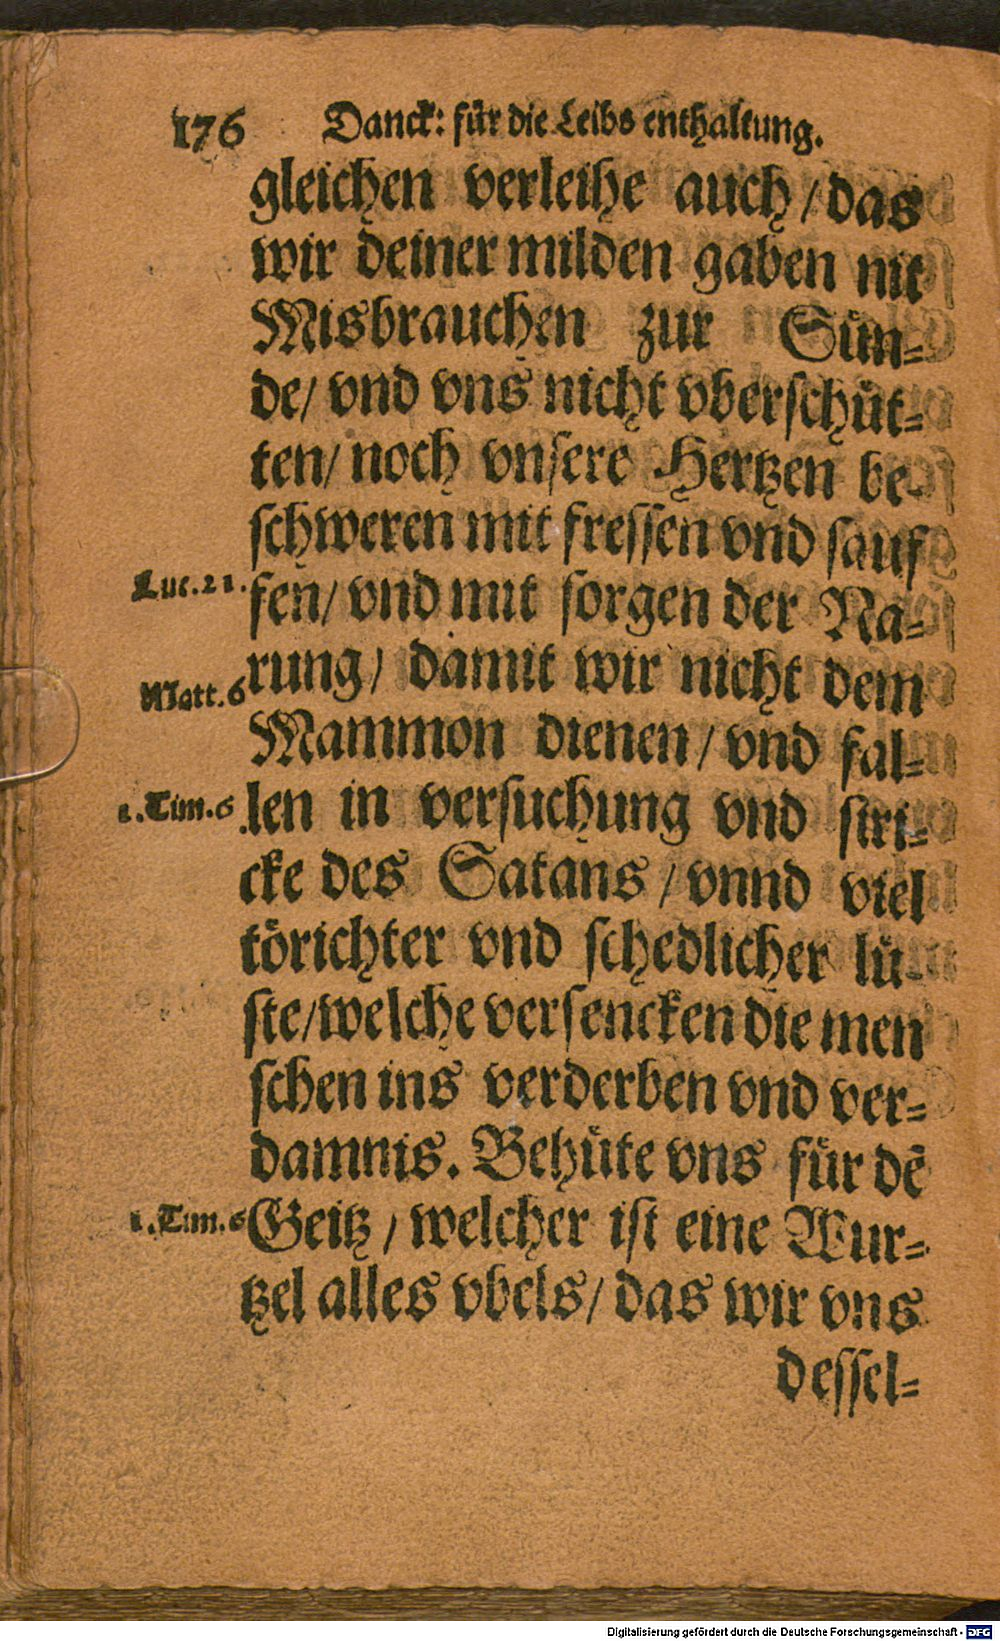 176 Danck: für die Leibs enthaltung.
gleichen verleihe auch / das
wir deiner milden gaben nit
Misbrauchen zur Sün-
de / vnd vns nicht vberschüt-
ten / noch vnsere Hertzen be-
schweren mit fressen vnd sauf
Luc. 21. fen / vnd mit sorgen der Na-
rung / damit wir nicht dem
Matt. 6
Mammon dienen / vnd fal-
1. Tim. 6 len in versuchung vnd stri-
cke des Satans / vnnd viel
törichter vnd schedlicher lü-
ste / welche versencken die men
schen ins verderben vnd ver-
damnis. Behüte vns für dē
1. Tim. 6 Geitz / welcher ist eine Wur-
tzel alles vbels / das wir vns
dessel-
Digitalisierung gefördert durch die Deutsche Forschungsgemeinschaft - DFG